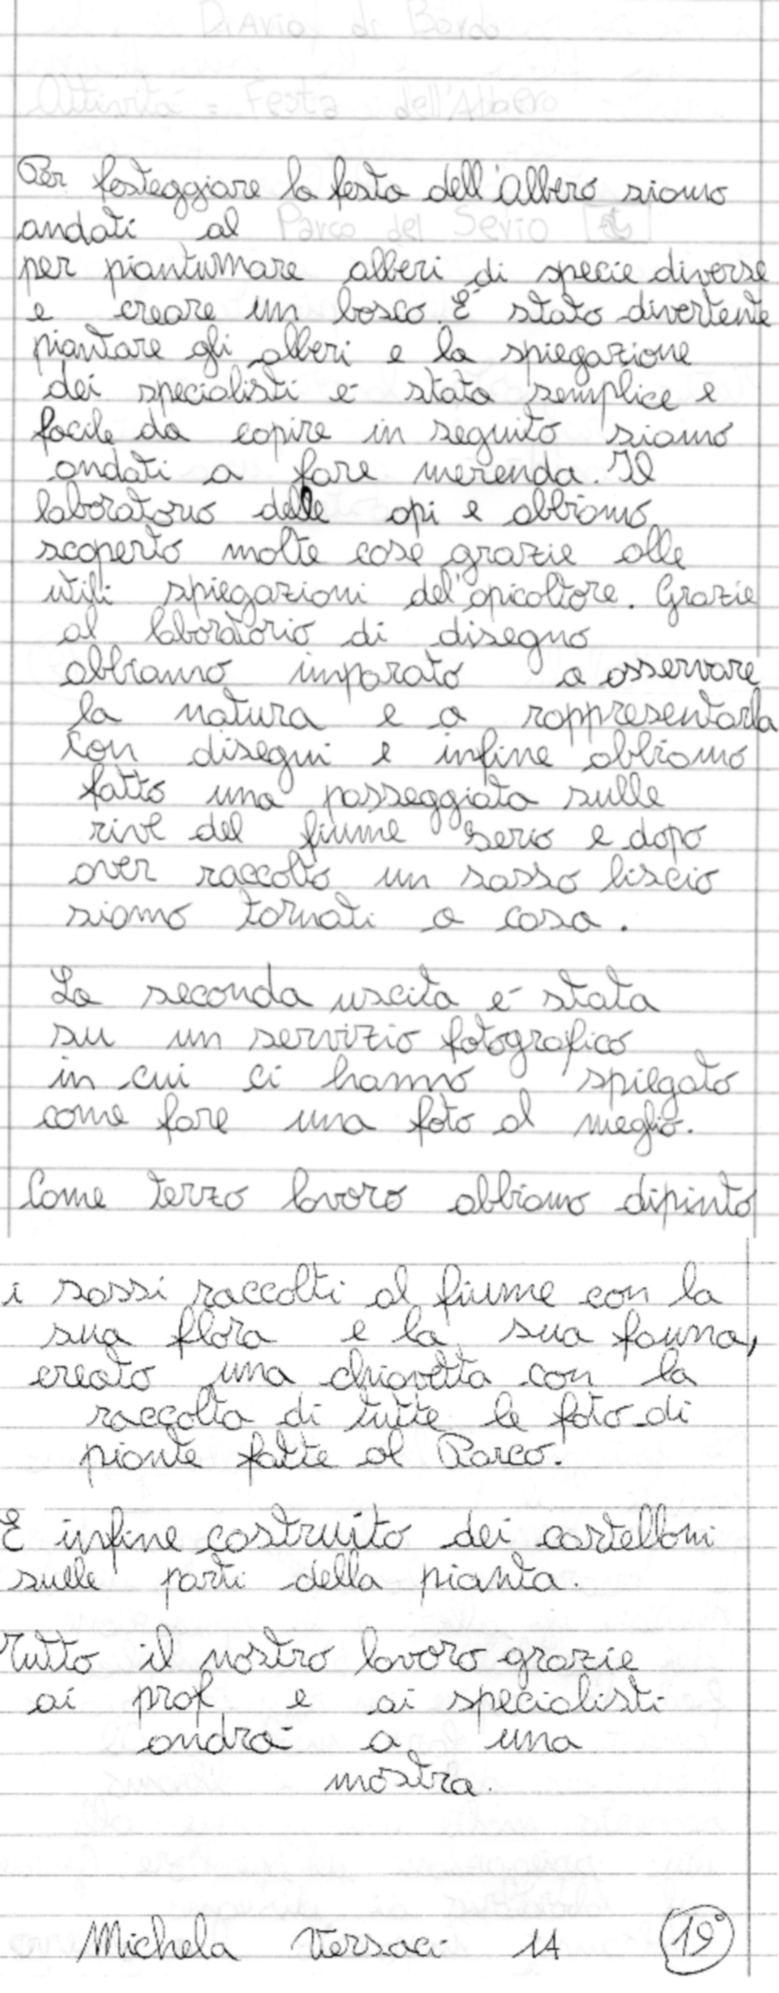 Diario di Bordo
Attività = Festa dell'Albero
Per festeggiare la festa dell'albero siamo
andati al Parco del Serio
per piantumare alberi di specie diverse
e creare un bosco. È stato divertente
piantare gli alberi e la spiegazione
dei specialisti è stata semplice e
facile da capire in seguito siamo
andati a fare merenda. Il
laboratorio delle api e abbiamo
scoperto molte cose grazie alle
utili spiegazioni del'apicoltore. Grazie
al laboratorio di disegno
abbiamo imparato a osservare
la natura e a rappresentarla
con disegni e infine abbiamo
fatto una passeggiata sulle
rive del fiume Serio e dopo
aver raccolto un sasso liscio
siamo tornati a casa.
La seconda uscita è stata
su un servizio fotografico
in cui ci hanno spiegato
come fare una foto al meglio.
Come terzo lavoro abbiamo dipinto
i sassi raccolti al fiume con la
sua flora e la sua fauna,
creato una chiavetta con la
raccolta di tutte le foto di
piante fatte al Parco.
E infine costruito dei cartelloni
sulle parti della pianta.
Tutto il nostro lavoro grazie
ai prof e ai specialisti
andrà a una
mostra.
Michela Versaci 1A 19